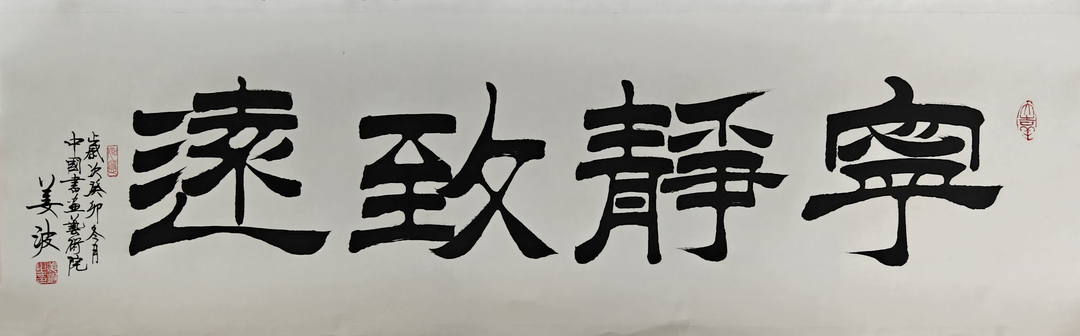 寧靜致遠
歲次癸卯冬月
中國書畫藝術院
姜波